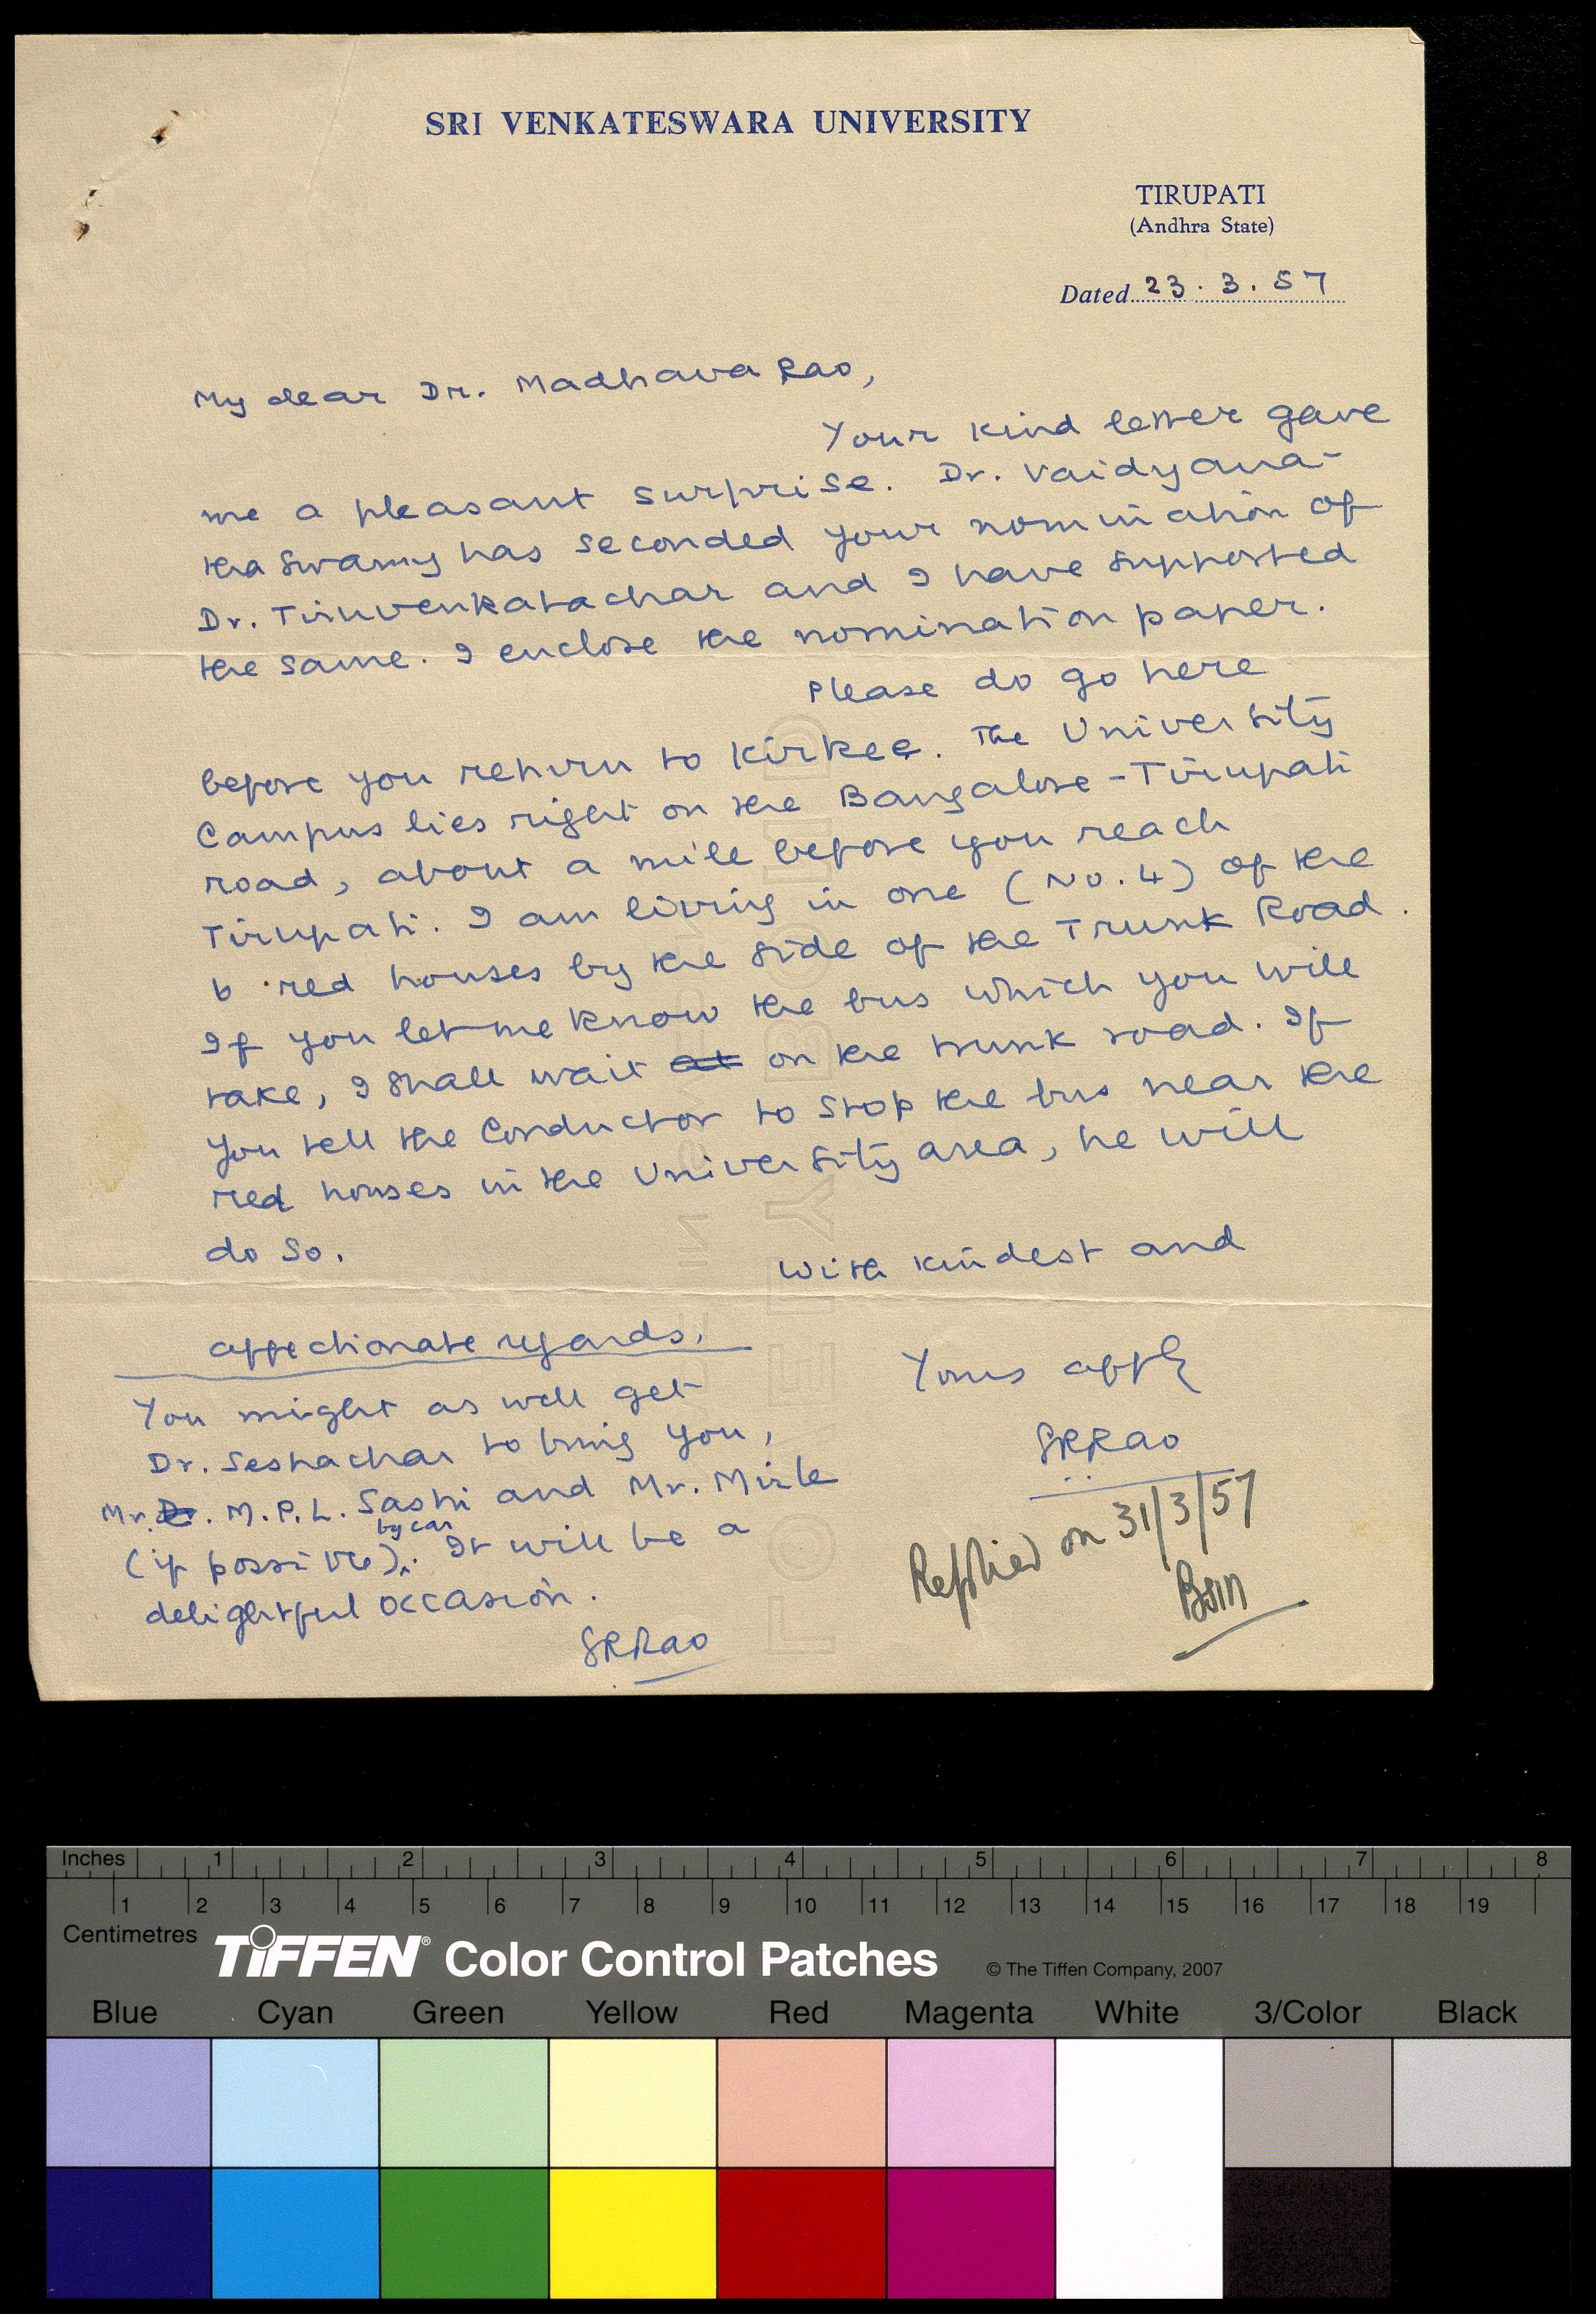 SRI VENKATESWARA UNIVERSITY
TIRUPATI
(Andhra State)
Dated 23.3.57
My dear Dr. Madhava Rao,
Your kind letter gave
me a pleasant surprise. Dr. Vaidyana-
thaswamy has seconded your nomination of
Dr. Tiruvenkatachar and I have supported
the same. I enclose the nomination paper.
Please do go here
before you return to Kirkee. The University
Campus lies right on the Bangalore-Tirupati
road, about a mile before you reach
Tirupati. I am living in one (No. 4) of the
6 red houses by the side of the Trunk Road.
If you let me know the bus which you will
take, I shall wait at on the trunk road. If
you tell the Conductor to stop the bus near the
red houses in the University area, he will
do so.
With kindest and
affectionate regards.
Yours affly
SRRao
You might as well get
Dr. Seshachar to bring you,
Mr. Dr. M.P.L. Sastri and Mr. Mirle
(if possible) by car. It will be a
delightful occasion.
SRRao
Replied on 31/3/57
BSM
Inches 1 2 3 4 5 6 7 8
1 2 3 4 5 6 7 8 9 10 11 12 13 14 15 16 17 18 19
Centimetres
TIFFEN® Color Control Patches © The Tiffen Company, 2007
Blue Cyan Green Yellow Red Magenta White 3/Color Black